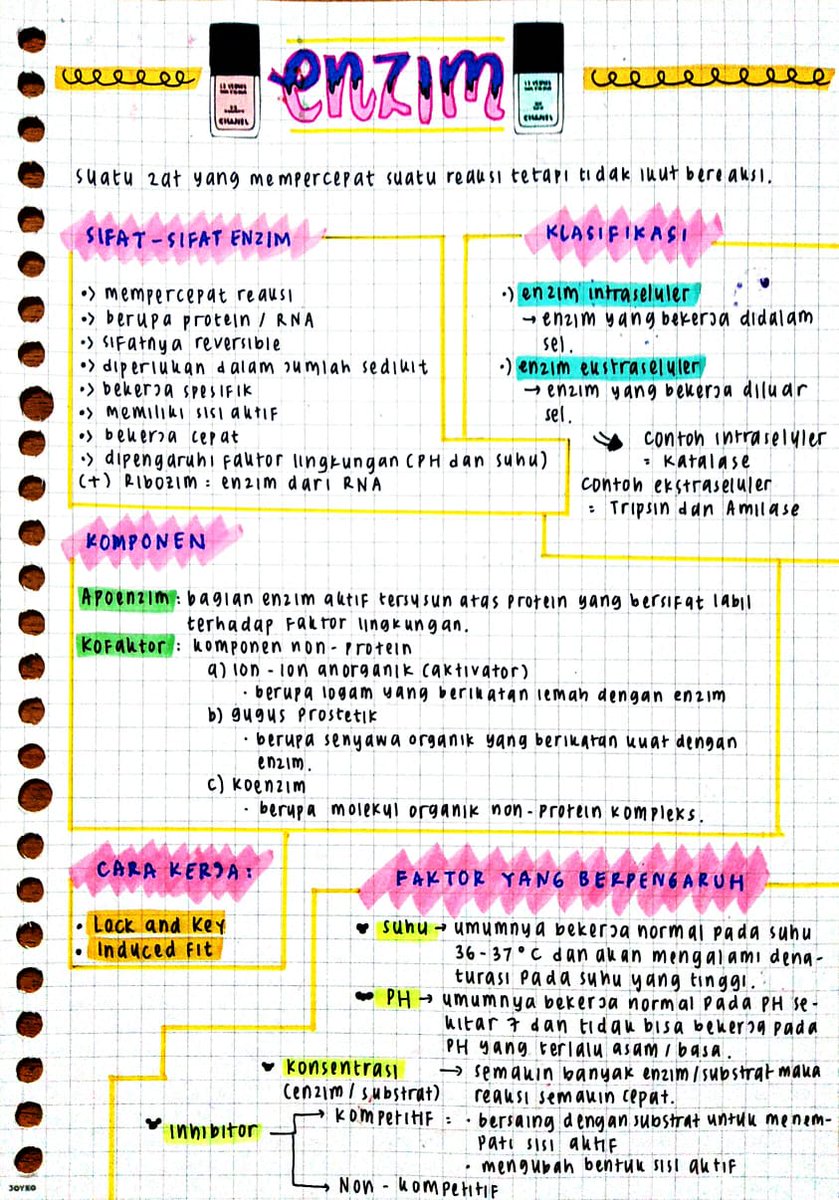 enzim
CHANEL
CHANEL
suatu zat yang mempercepat suatu reaksi tetapi tidak ikut bereaksi.
SIFAT-SIFAT ENZIM
•> mempercepat reaksi
•> berupa protein / RNA
•> sifatnya reversible
•> diperlukan dalam jumlah sedikit
•> bekerja spesifik
•> memiliki sisi aktif
•> bekerja cepat
•> dipengaruhi faktor lingkungan (PH dan suhu)
(+) Ribozim : enzim dari RNA
KLASIFIKASI
•) enzim intraseluler
→ enzim yang bekerja didalam
sel.
•) enzim ekstraseluler
→ enzim yang bekerja diluar
sel.
contoh intraseluler
= Katalase
contoh ekstraseluler
= Tripsin dan Amilase
KOMPONEN
Apoenzim : bagian enzim aktif tersusun atas protein yang bersifat labil
terhadap faktor lingkungan.
Kofaktor : komponen non-protein
a) Ion-ion anorganik (aktivator)
• berupa logam yang berikatan lemah dengan enzim
b) gugus prostetik
• berupa senyawa organik yang berikatan kuat dengan
enzim.
c) Koenzim
• berupa molekul organik non-protein kompleks.
CARA KERJA:
• Lock and Key
• Induced Fit
FAKTOR YANG BERPENGARUH
suhu → umumnya bekerja normal pada suhu
36-37°C dan akan mengalami dena-
turasi pada suhu yang tinggi.
PH → umumnya bekerja normal pada PH se-
kitar 7 dan tidak bisa bekerja pada
PH yang terlalu asam/basa.
konsentrasi → semakin banyak enzim/substrat maka
(enzim/substrat) reaksi semakin cepat.
inhibitor
kompetitif = • bersaing dengan substrat untuk menem-
pati sisi aktif
• mengubah bentuk sisi aktif
Non-kompetitif
JOYKO